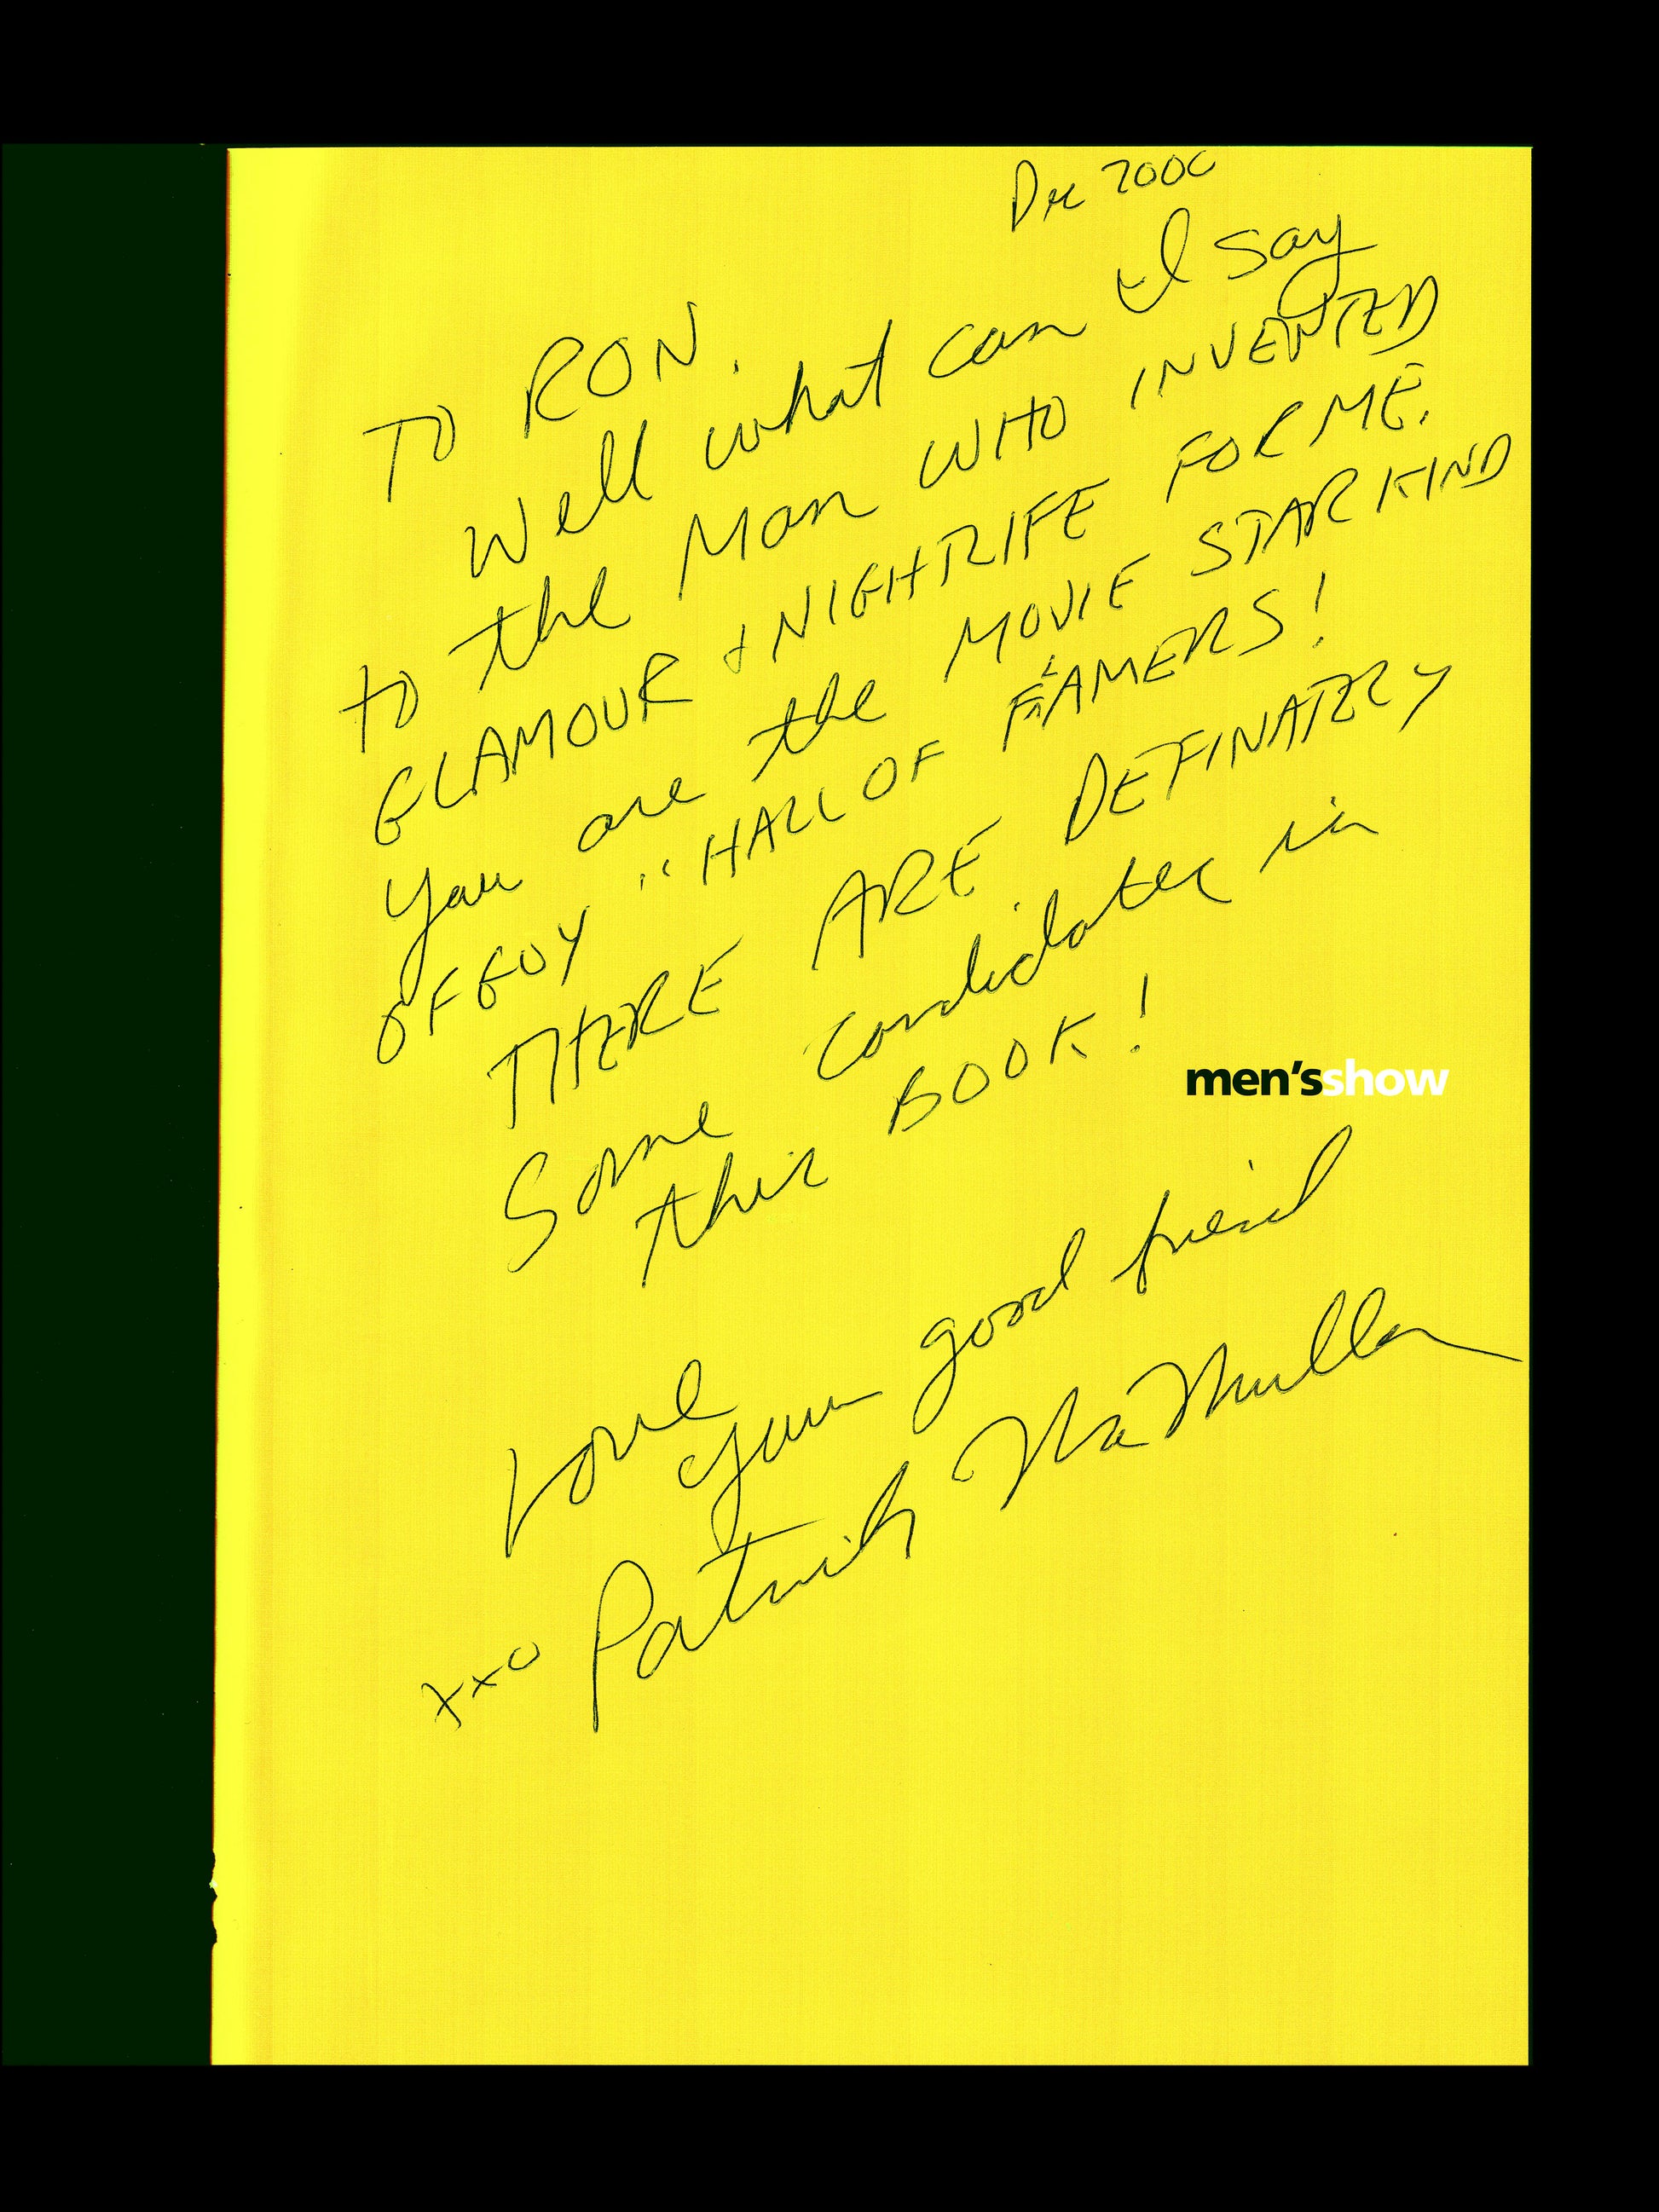 Dec 2000
TO RON.
Well what can I say
to the Man WHO INVENTED
GLAMOUR & NIGHTLIFE FOR ME.
You are the MOVIE STAR KIND
OF GUY "HALL OF FAMERS!
THERE ARE DEFINATELY
Some candidates in
this BOOK!
men'sshow
Love
your good friend
Patrick McMullan
xxo